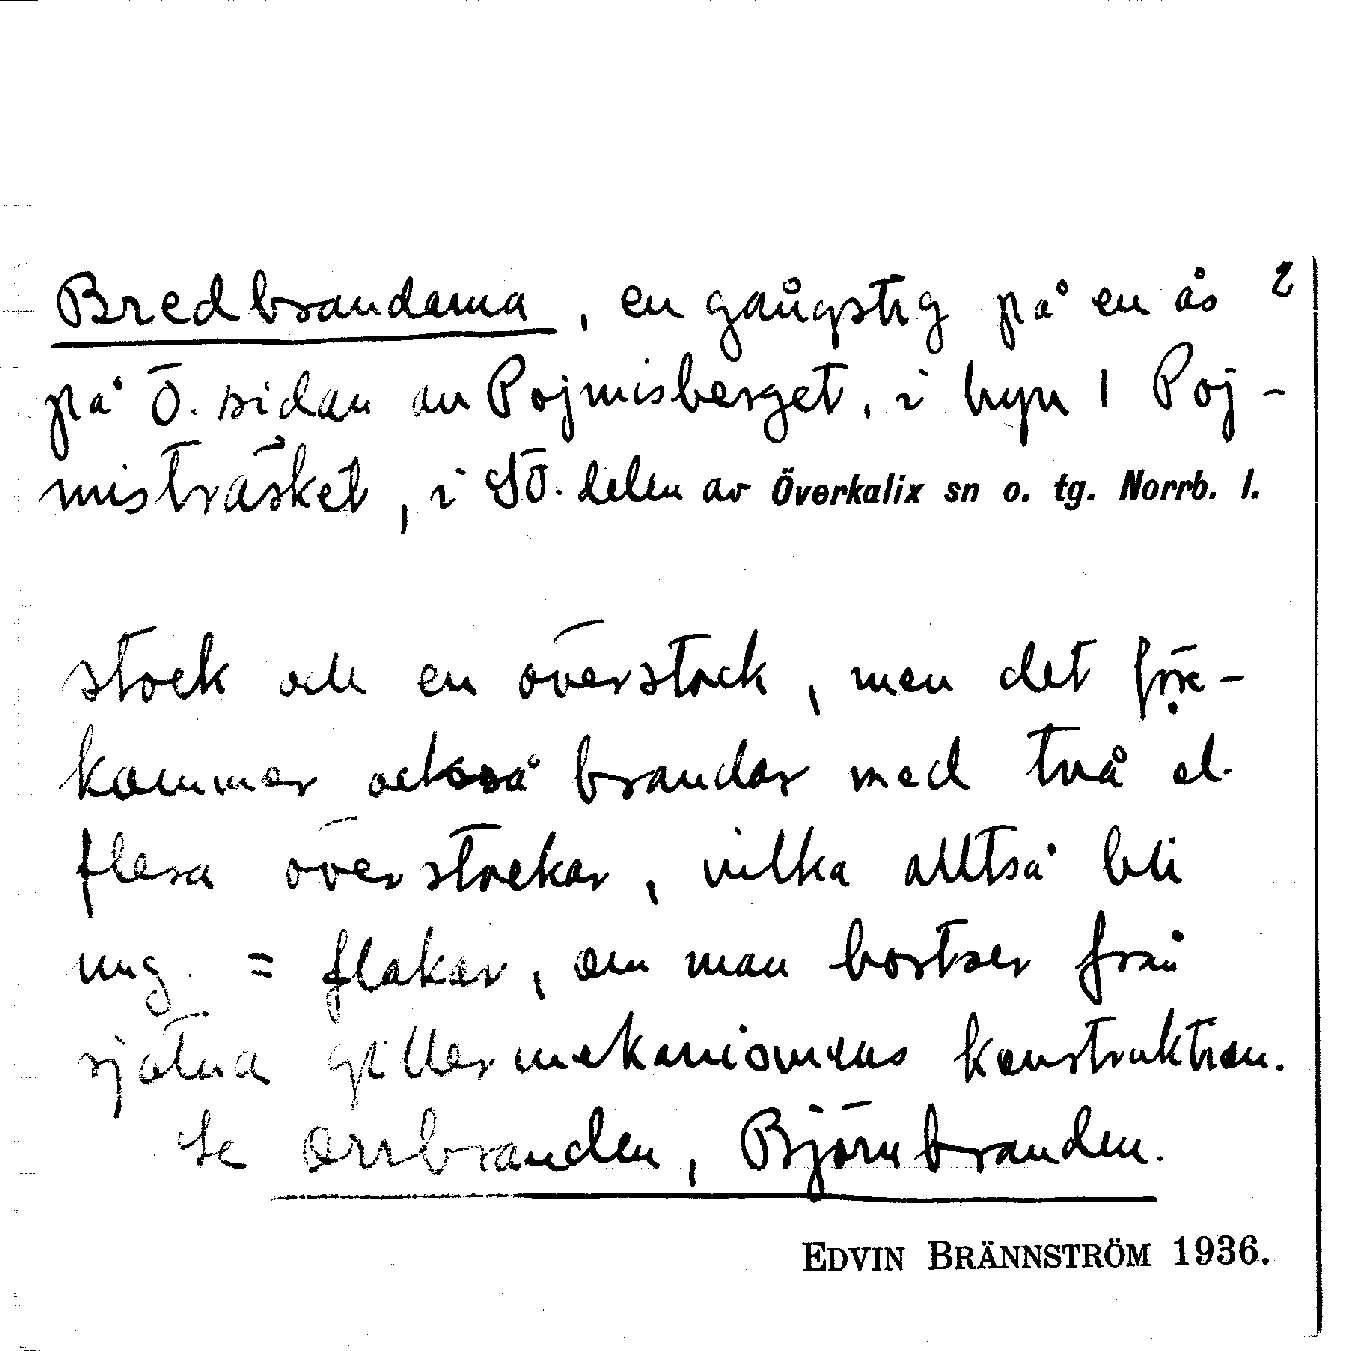 Bredbrandarna, en gångstig på en ås 2
på Ö. sidan av Pojmisberget, i byn 1 Poj-
misträsket, i SÖ. delen av Överkalix sn o. tg. Norrb. l.
stock och en överstock, men det före-
kommer också brandar med två el.
flera överstockar, vilka alltså bli
ung. = flakar, om man bortser från
själva gillermekanismens konstruktion.
Se Orrbranden, Björnbranden.
EDVIN BRÄNNSTRÖM 1936.